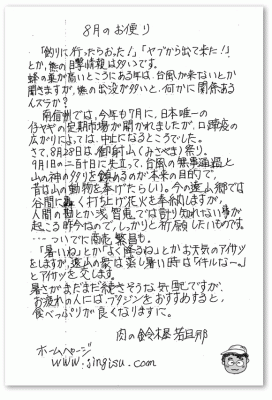 8月のお便り
「釣りに行ったらおった!」「ヤブから出て来た!」
とか、熊の目撃情報は多いです。
蜂の巣が高いところにある年は、台風が来ないとか
聞きますが、熊の出没が多いと、何かに関係ある
んズラか?
南信州では、今年も7月に、日本唯一の
仔ヤギの定期市場が開かれましたが、口蹄疫の
広がりによっては、中止になるところでした。
さて、8月28日は御射山(みさやま)祭り。
9月1日の二百十日に先立って、台風の無事通過と
山の神の祟りを鎮めるのが本来の目的で、
昔は山の動物を奉げたらしい。今の遠山郷では
谷間に轟く打ち上げ花火を奉納しますが、
人間の勘とか浅智恵では計り知れない事が
起こる昨今なので、しっかりと祈願したいものです。
…ついでに商売繁盛も。
「暑いね」とか「よく降るね」とかお天気のアイサツ
をしますが、遠山の衆は蒸し暑い時は「イキルなー。」
とアイサツを交します。
暑さがまだまだ続きそうな気配ですが、
お疲れの人には、ブタジンをおすすめすると、
食べっぷりが良くなりますに。
肉の鈴木屋 若旦那
ホームページ
www.jingisu.com